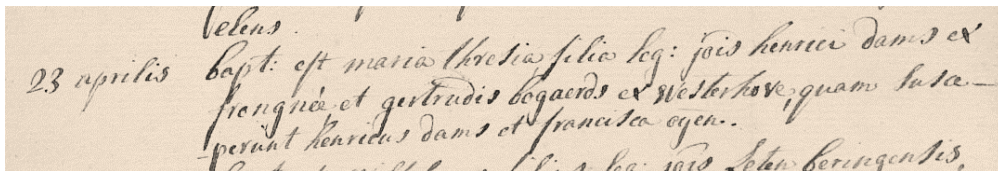 velens.
23 aprilis bapt: est maria thresia filia leg: jois henrici dams ex
frongnée et gertrudis bogaerds ex westerhove, quam susce-
perunt henricus dams et francisca oyen..
filia leg: jois Seten beringensis,